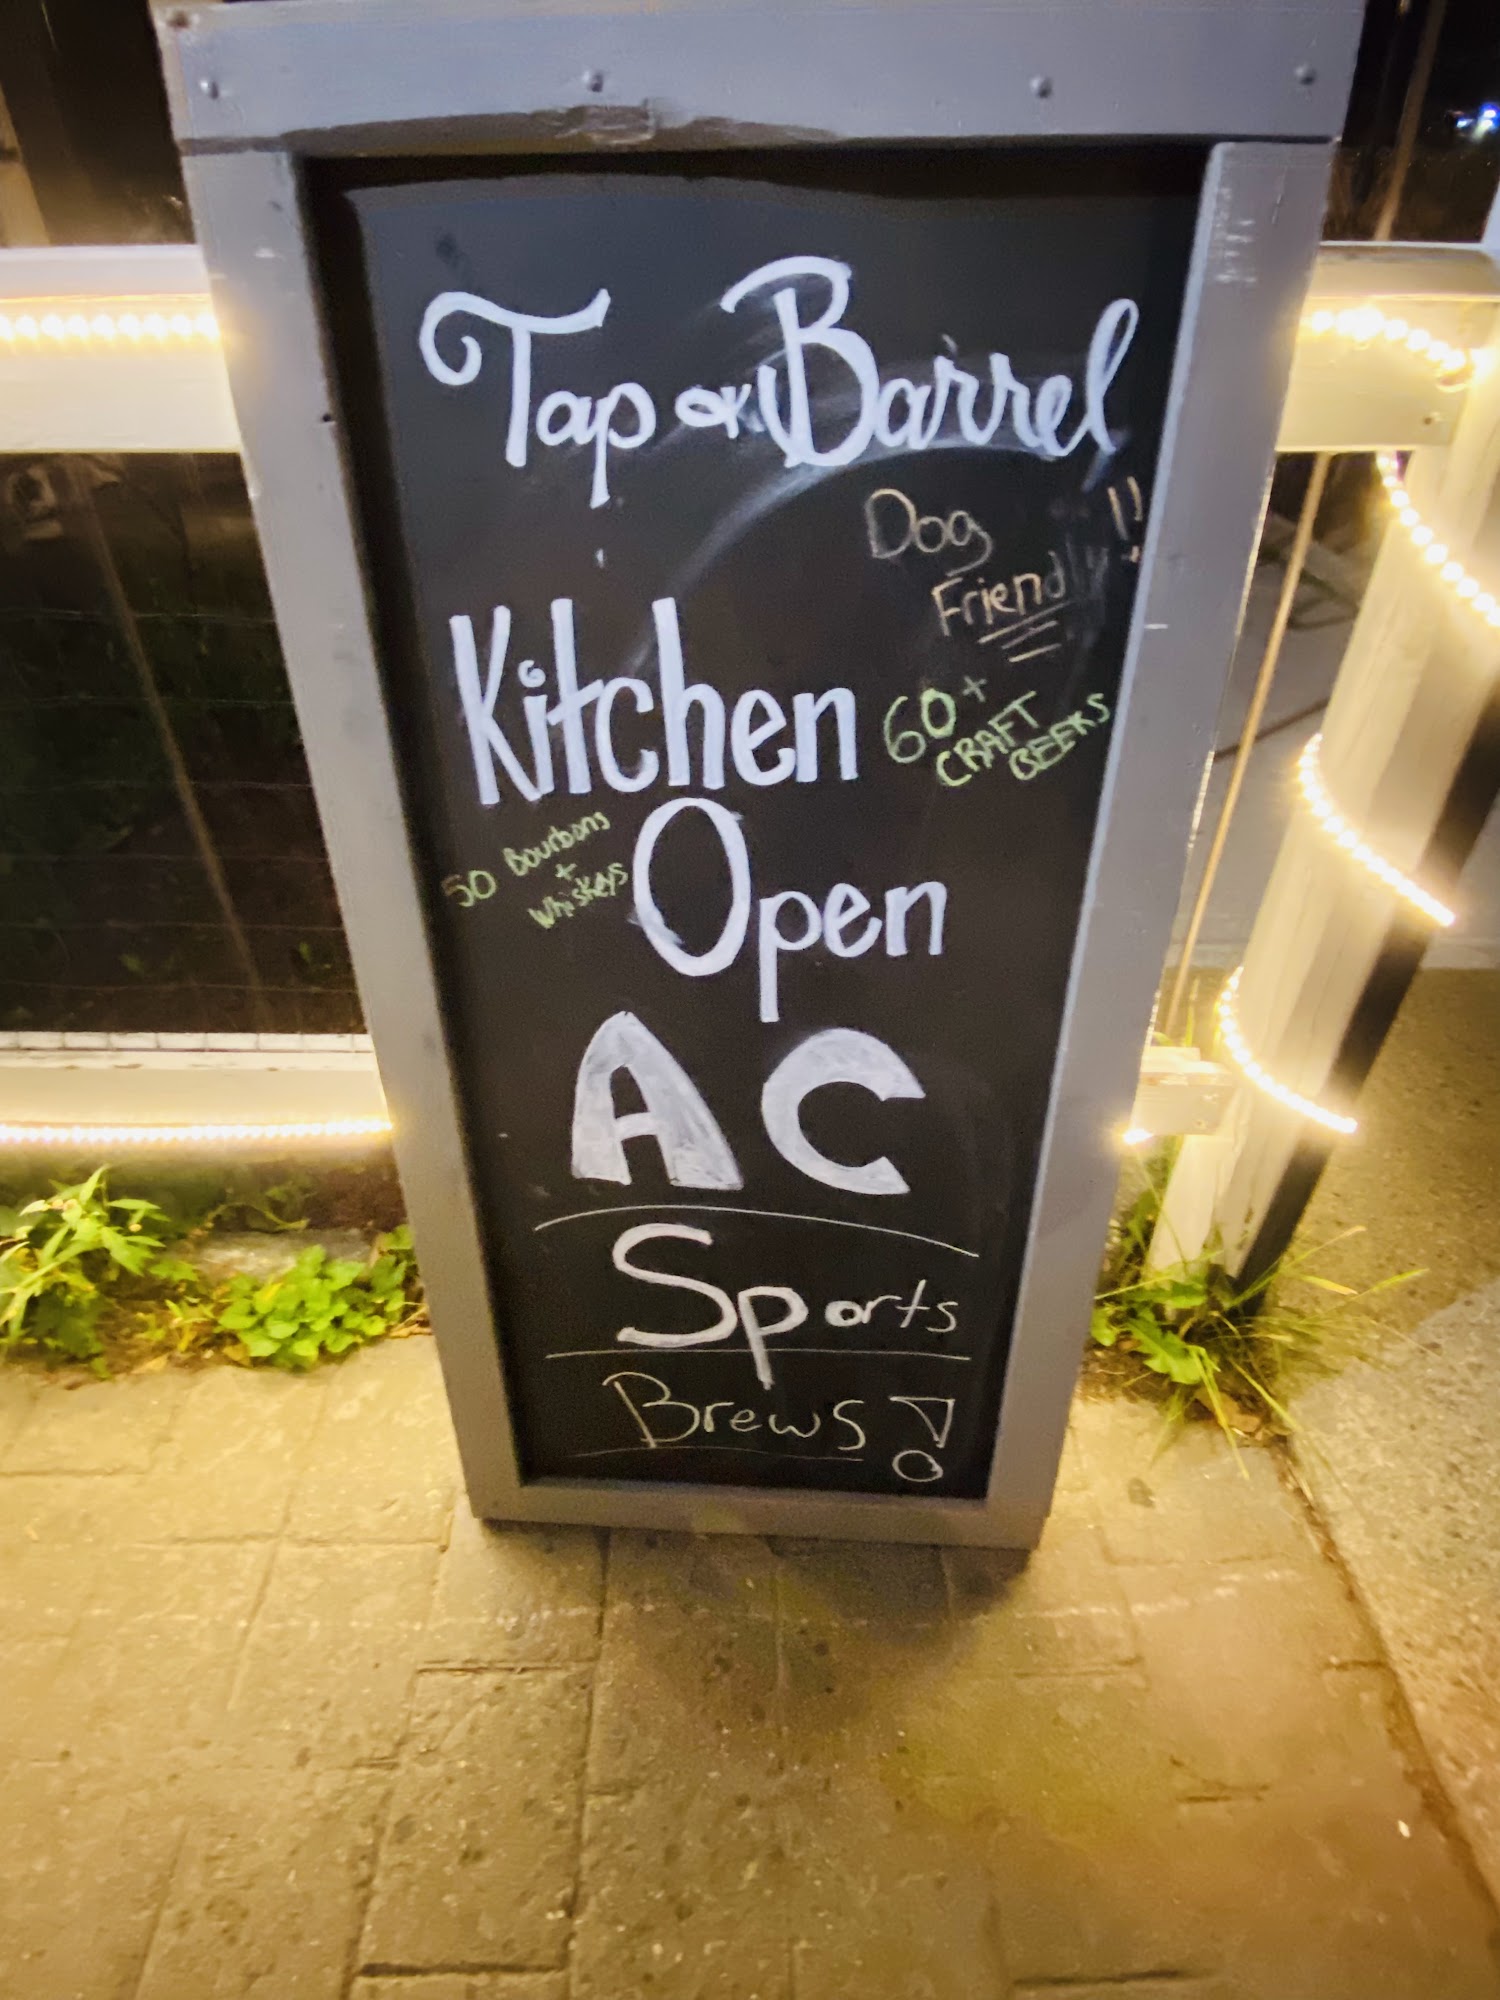 Tap & Barrel
Dog
Friendly!!
Kitchen
60+
CRAFT
BEERS
50 Bourbons
+
Whiskeys
Open
AC
Sports
Brews!